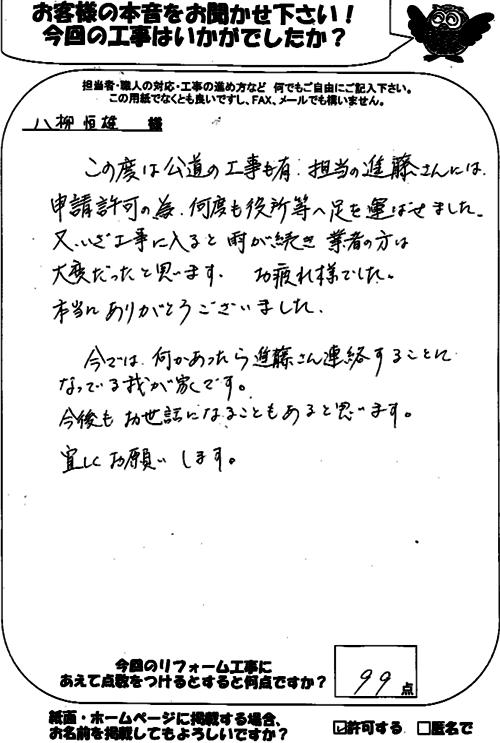 お客様の本音をお聞かせ下さい!
今回の工事はいかがでしたか?
担当者・職人の対応・工事の進め方など 何でもご自由にご記入下さい。
この用紙でなくとも良いですし、FAX、メールでも構いません。
八柳 恒雄 様
この度は公道の工事も有、担当の進藤さんには、
申請許可の為、何度も役所等へ足を運ばせました。
又、いざ工事に入ると雨が続き 業者の方は
大変だったと思います。 お疲れ様でした。
本当にありがとうございました、
今では、何かあったら進藤さん連絡することに
なっている我が家です。
今後もお世話になることもあると思います。
宜しくお願いします。
今回のリフォーム工事に
あえて点数をつけるとすると何点ですか?
99点
紙面・ホームページに掲載する場合、
お名前を掲載してもよろしいですか?
☑許可する □匿名で